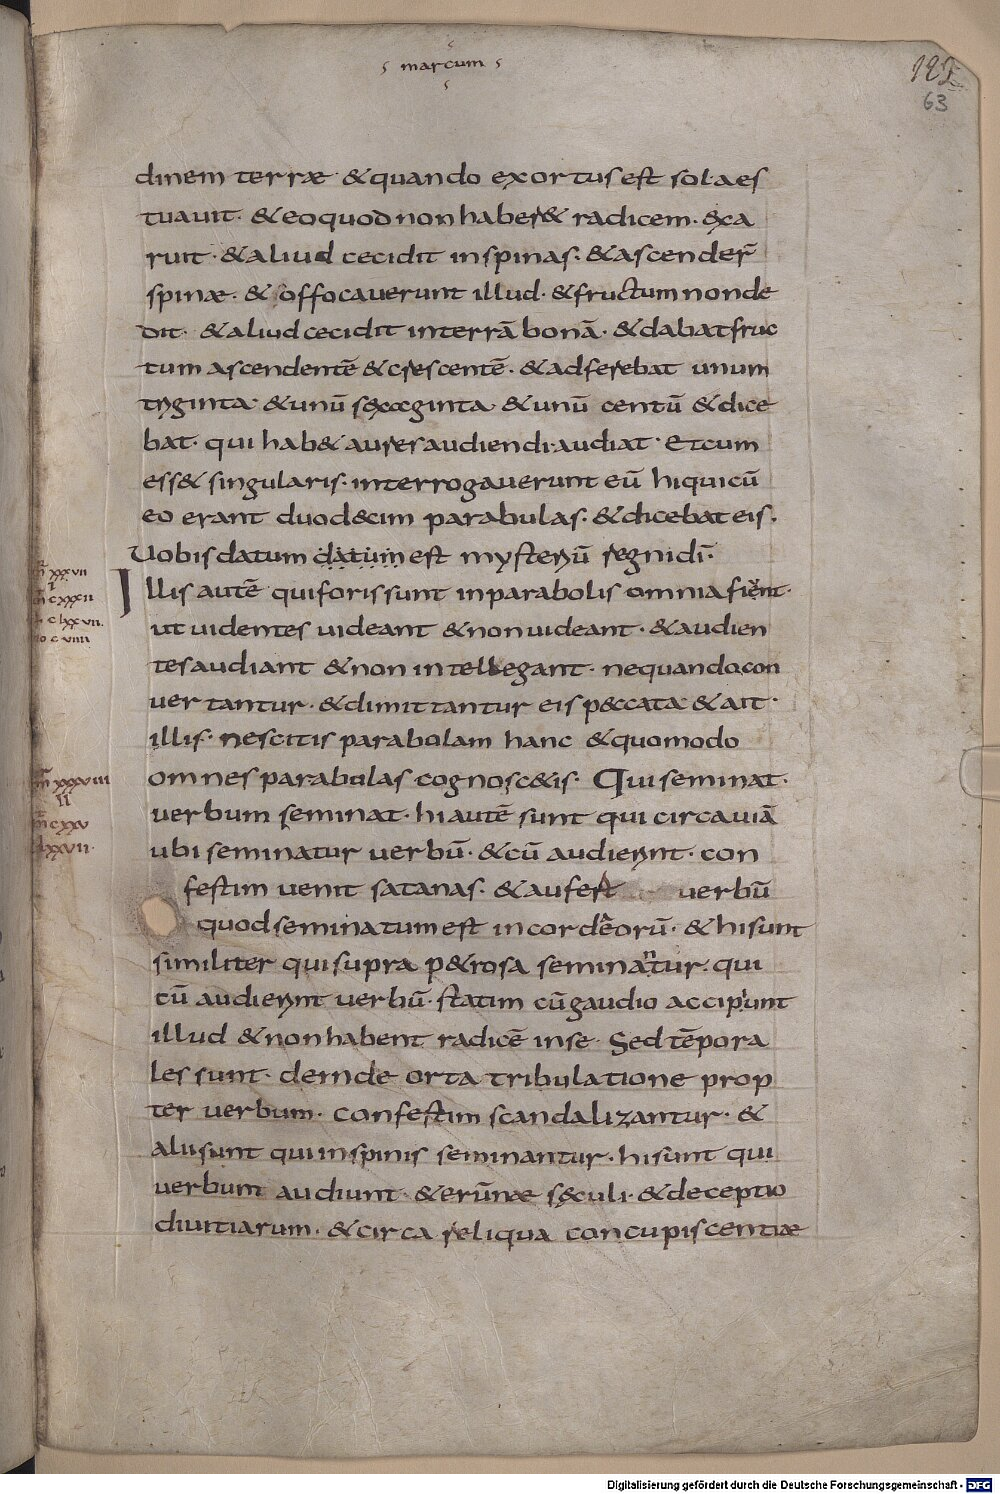 marcum
122
63
dinem terræ &quando exortusest solaes
tuauit· &eoquodnonhaber& radicem· exa
ruit· &aliud cecidit inspinas· &ascender̄
spinæ· & offocauerunt illud· &fructumnonde
dit· &aliudcecidit interrā bonā· &dabatfruc
tum ascendentē &crescentē· &adferebat unum
triginta· &unū sexaginta· &unū centū &dice
bat· qui hab& auresaudiendi·audiat· Etcum
ess& singularis· interrogauerunt eū hiquicū
eo erant duodecim parabulas· &dicebateis·
Uobisdatum datum est mysteriū regnidī·
Illis autē quiforissunt inparabolis omniafient·
ut uidentes uideant &nonuideant· &audien
tesaudiant &non intellegant· nequandocon
uertantur· &dimittantur eis peccata· &ait·
illis· nescitis parabolam hanc &quomodo
omnes parabulas cognosc&is· Quiseminat·
uerbum seminat· hiautē sunt qui circauiā
ubi seminatur uerbū· &cū audierint· con
festim uenit satanas· &aufert uerbū
quodseminatumest incordēorū· & hisunt
similiter quisupra p&rosa seminantur· qui
cū audierint uerbū· statim cūgaudio accipiunt
illud &nonhabent radicē inse· Sed tēpora
les sunt· deinde orta tribulatione prop
ter uerbum· confestim scandalizantur· &
aliisunt quiinspinis seminantur· hisunt qui
uerbum audiunt· &erūnæ sęculi· &deceptio
diuitiarum· &circa reliqua concupiscentiæ
xxxvii
i
cxxxii
clxxvii
cviiii
xxxviii
ii
cxxv
lxxvii
Digitalisierung gefördert durch die Deutsche Forschungsgemeinschaft - DFG